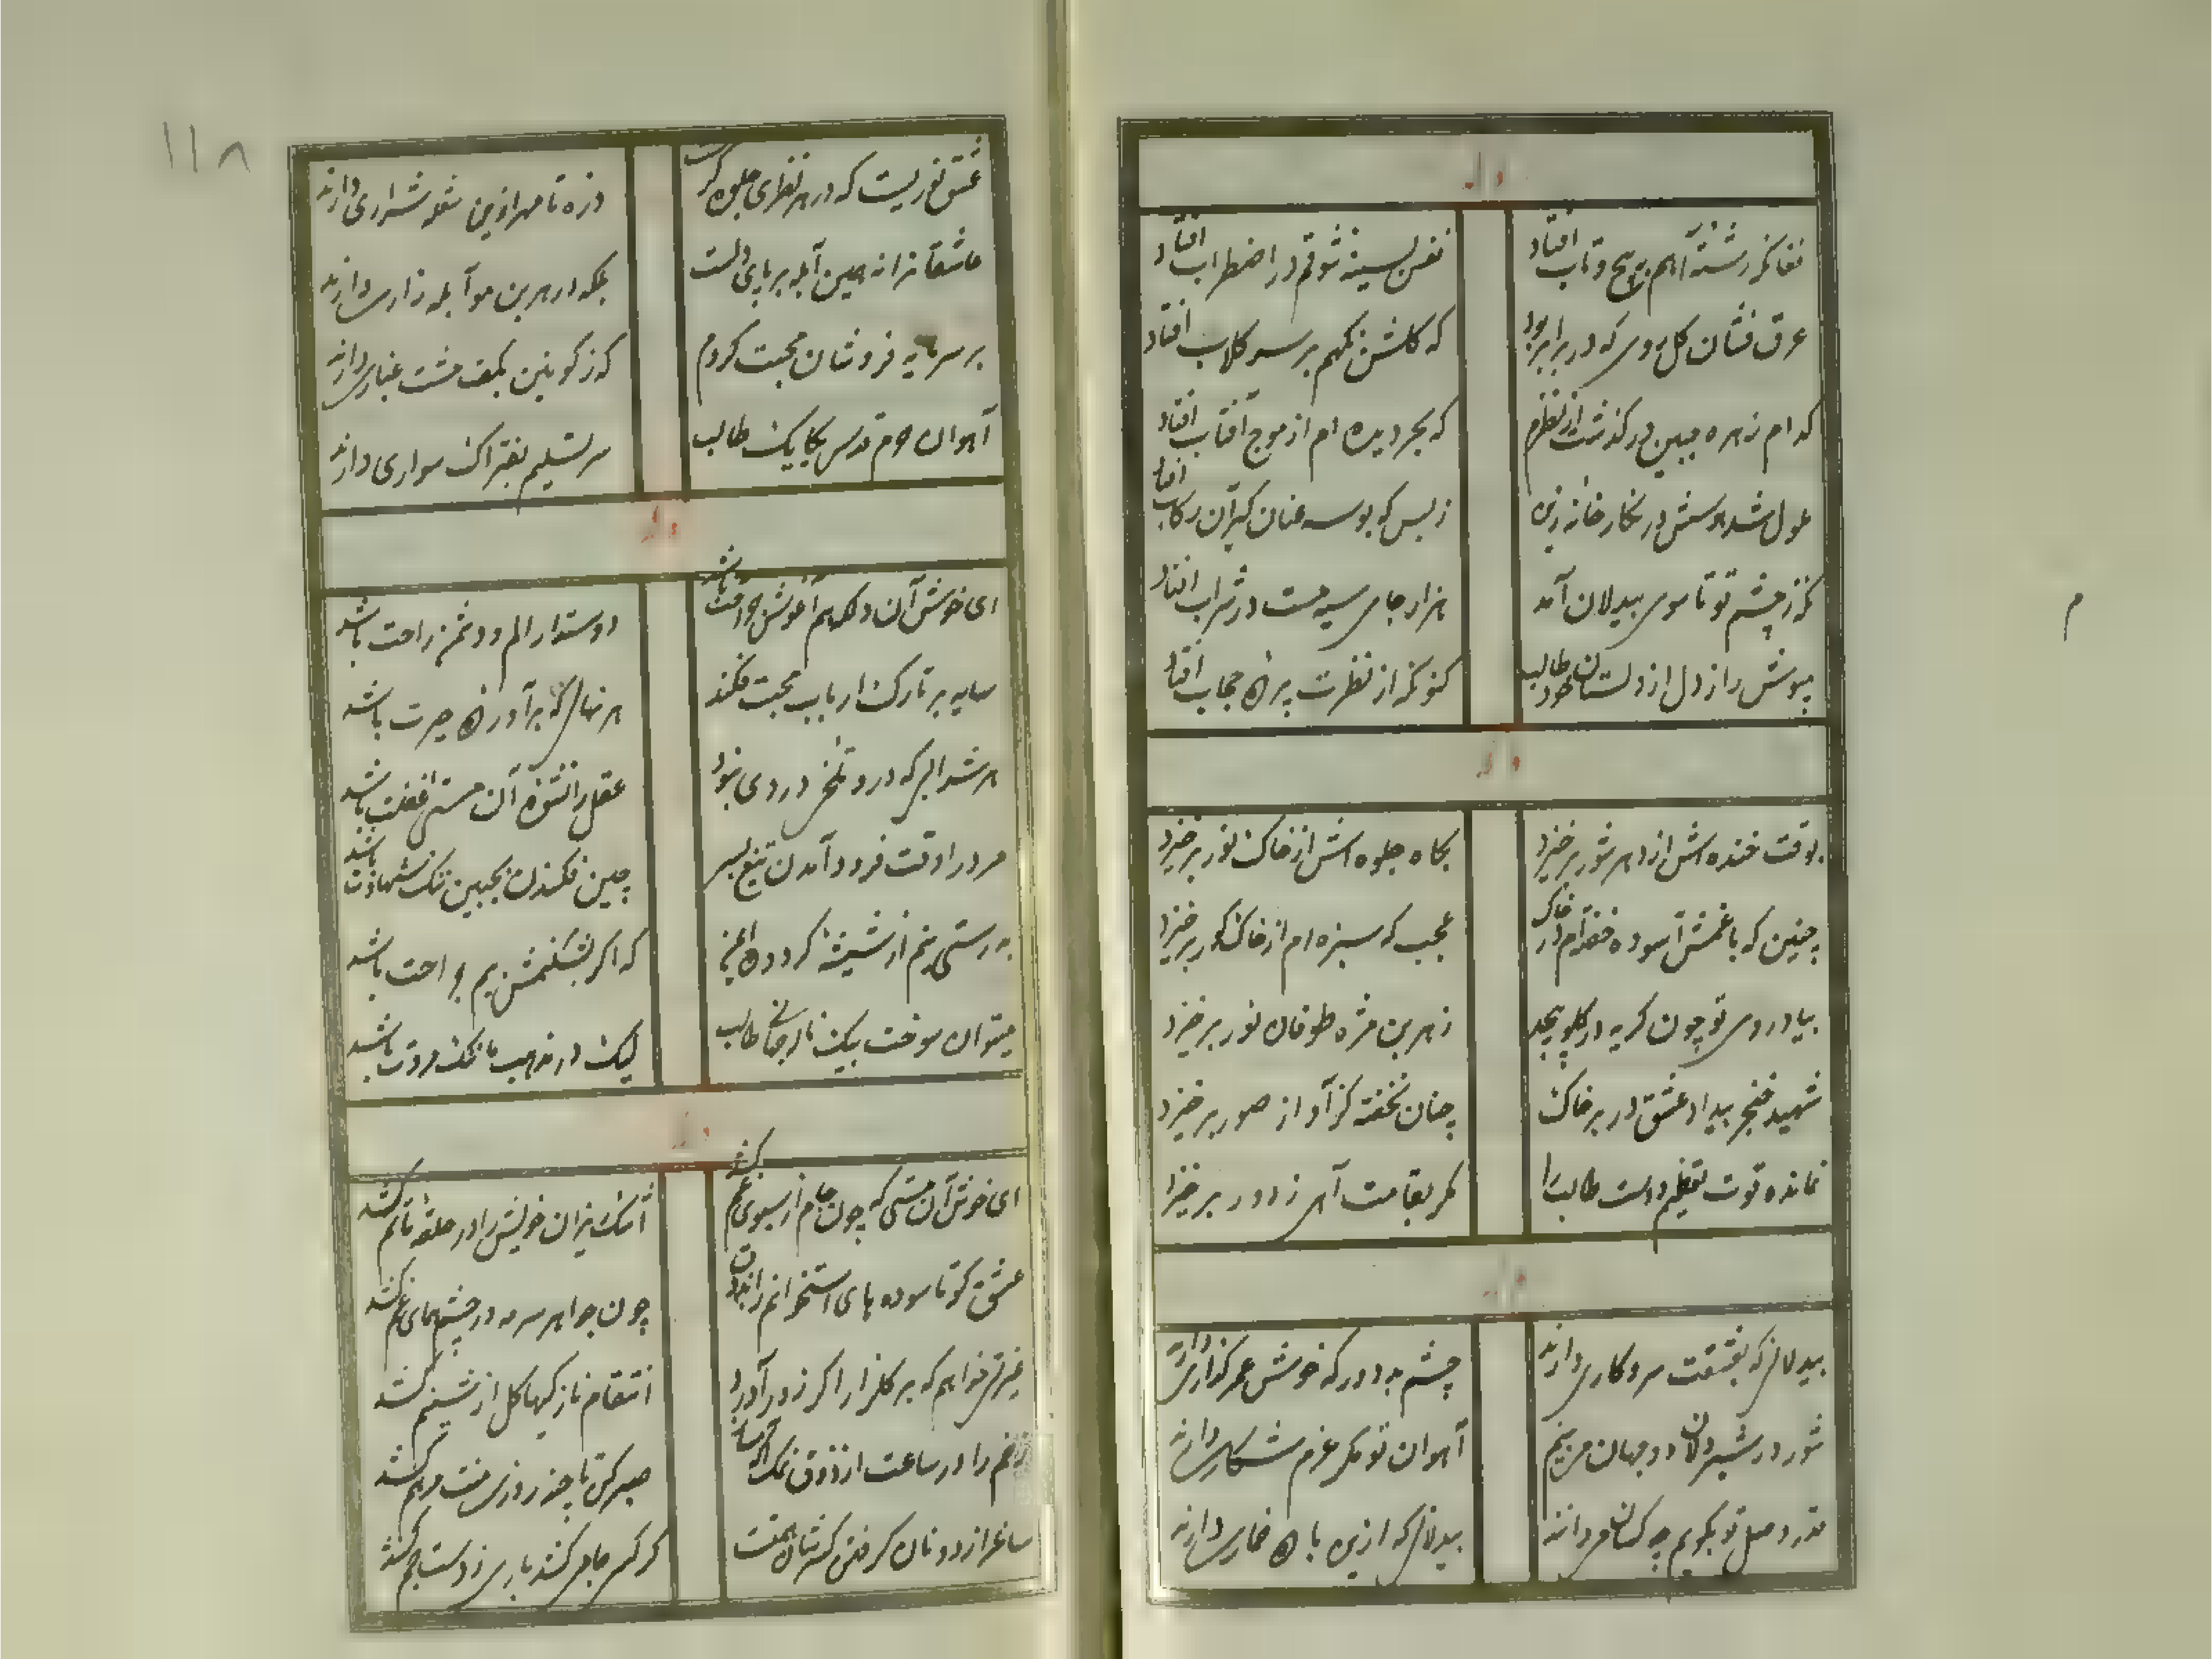 وله
فغان کز رشته آهم به پیچ و تاب افتاد
نفس بسینه شوقم در اضطراب افتاد
عرق فشان کل روی که در برابر بود
که کلشن نکهم بر سر کلاب افتاد
کدام زهره جبین در کذشت از نظرم
که بحر دیده ام از موج آفتاب افتاد
ملول شد هوسش در نکارخانه زین
ز بس که بوسه عنان کیر آن رکاب افتاد
که ز چشم تو تا سوی بیدلان آمد
هزار جا سیه مست در شراب افتاد
بپوش راز دل از دلستان خود طالب
کنونکه از نظرت پرده حجاب افتاد
وله
بوقت خنده اش از دهر شور برخیزد
بکاه جلوه اش از خاک نور برخیزد
چنین که با غمش آسوده خفته ام در خاک
عجب که سبزه ام از خاک کور برخیزد
بیاد روی تو چون کریه در کلو پیچد
ز هر بن مژه طوفان نور برخیزد
شهید خنجر بیداد عشق در بر خاک
چنان نخفته کز آواز صور برخیزد
نمانده قوت تعظیم دوست طالب را
مکر بقامت آهی ز دور برخیزد
وله
بیدلانی که بعشقت سر و کاری دارند
چشم بد دور که خوش عمر کذاری دارند
شور در شیردلان دو جهان می بینم
آهوان تو مکر عزم شکاری دارند
قدر وصل تو بکویم چه کسان می دانند
بیدلانی که ازین باده خماری دارند
۱۱۸
عشق نوریست که در هر نظری جلوه کرست
ذره تا مهر ازین شعله شراری دارند
عاشقانرا نه همین آبله بر پای دلست
بلکه در هر بن مو آبله زاری دارند
بر سرمایه فروشان محبت کردم
که ز کونین بکف مشت غباری دارند
آهوان حرم قدس یکایک طالب
سر تسلیم بفتراک سواری دارند
وله
ای خوش آن دل که هم آغوش جراحت باشد
دوستدار الم و دشمن راحت باشد
سایه بر تارک ارباب محبت فکند
هر نهالی که برآورده حیرت باشد
هر شرابی که درو تلخی دردی نبود
عقل را نشوه آن مستی غفلت باشد
مرد را وقت فرود آمدن تیغ بسر
چین فکندن بجبین ننک شهادت باشد
که اکر بشکنمش بیم جراحت باشد
میتوان سوخت بیک ناله جهانی طالب
لیک در مذهب ما ننک مروت باشد
وله
ای خوش آن مستی که چون جام از سبوی غم کشد
اشک ریزان خویش را در حلقه ماتم کشد
عشق کو تا سوده های استخوانم را
چون جواهر سرمه در چشم همای غم کشد
غیرتی خواهم که بر کلزار اکر زور آورد
انتقام نازکیها کل از شبنم کشد
زخم را در ساعت از ذوق نمک
صبر کی تا چند روزی منت مرهم کشد
ساغر از دونان کرفتن کسر شان همتست
کر کسی جامی کشد باری ز دست جم کشد